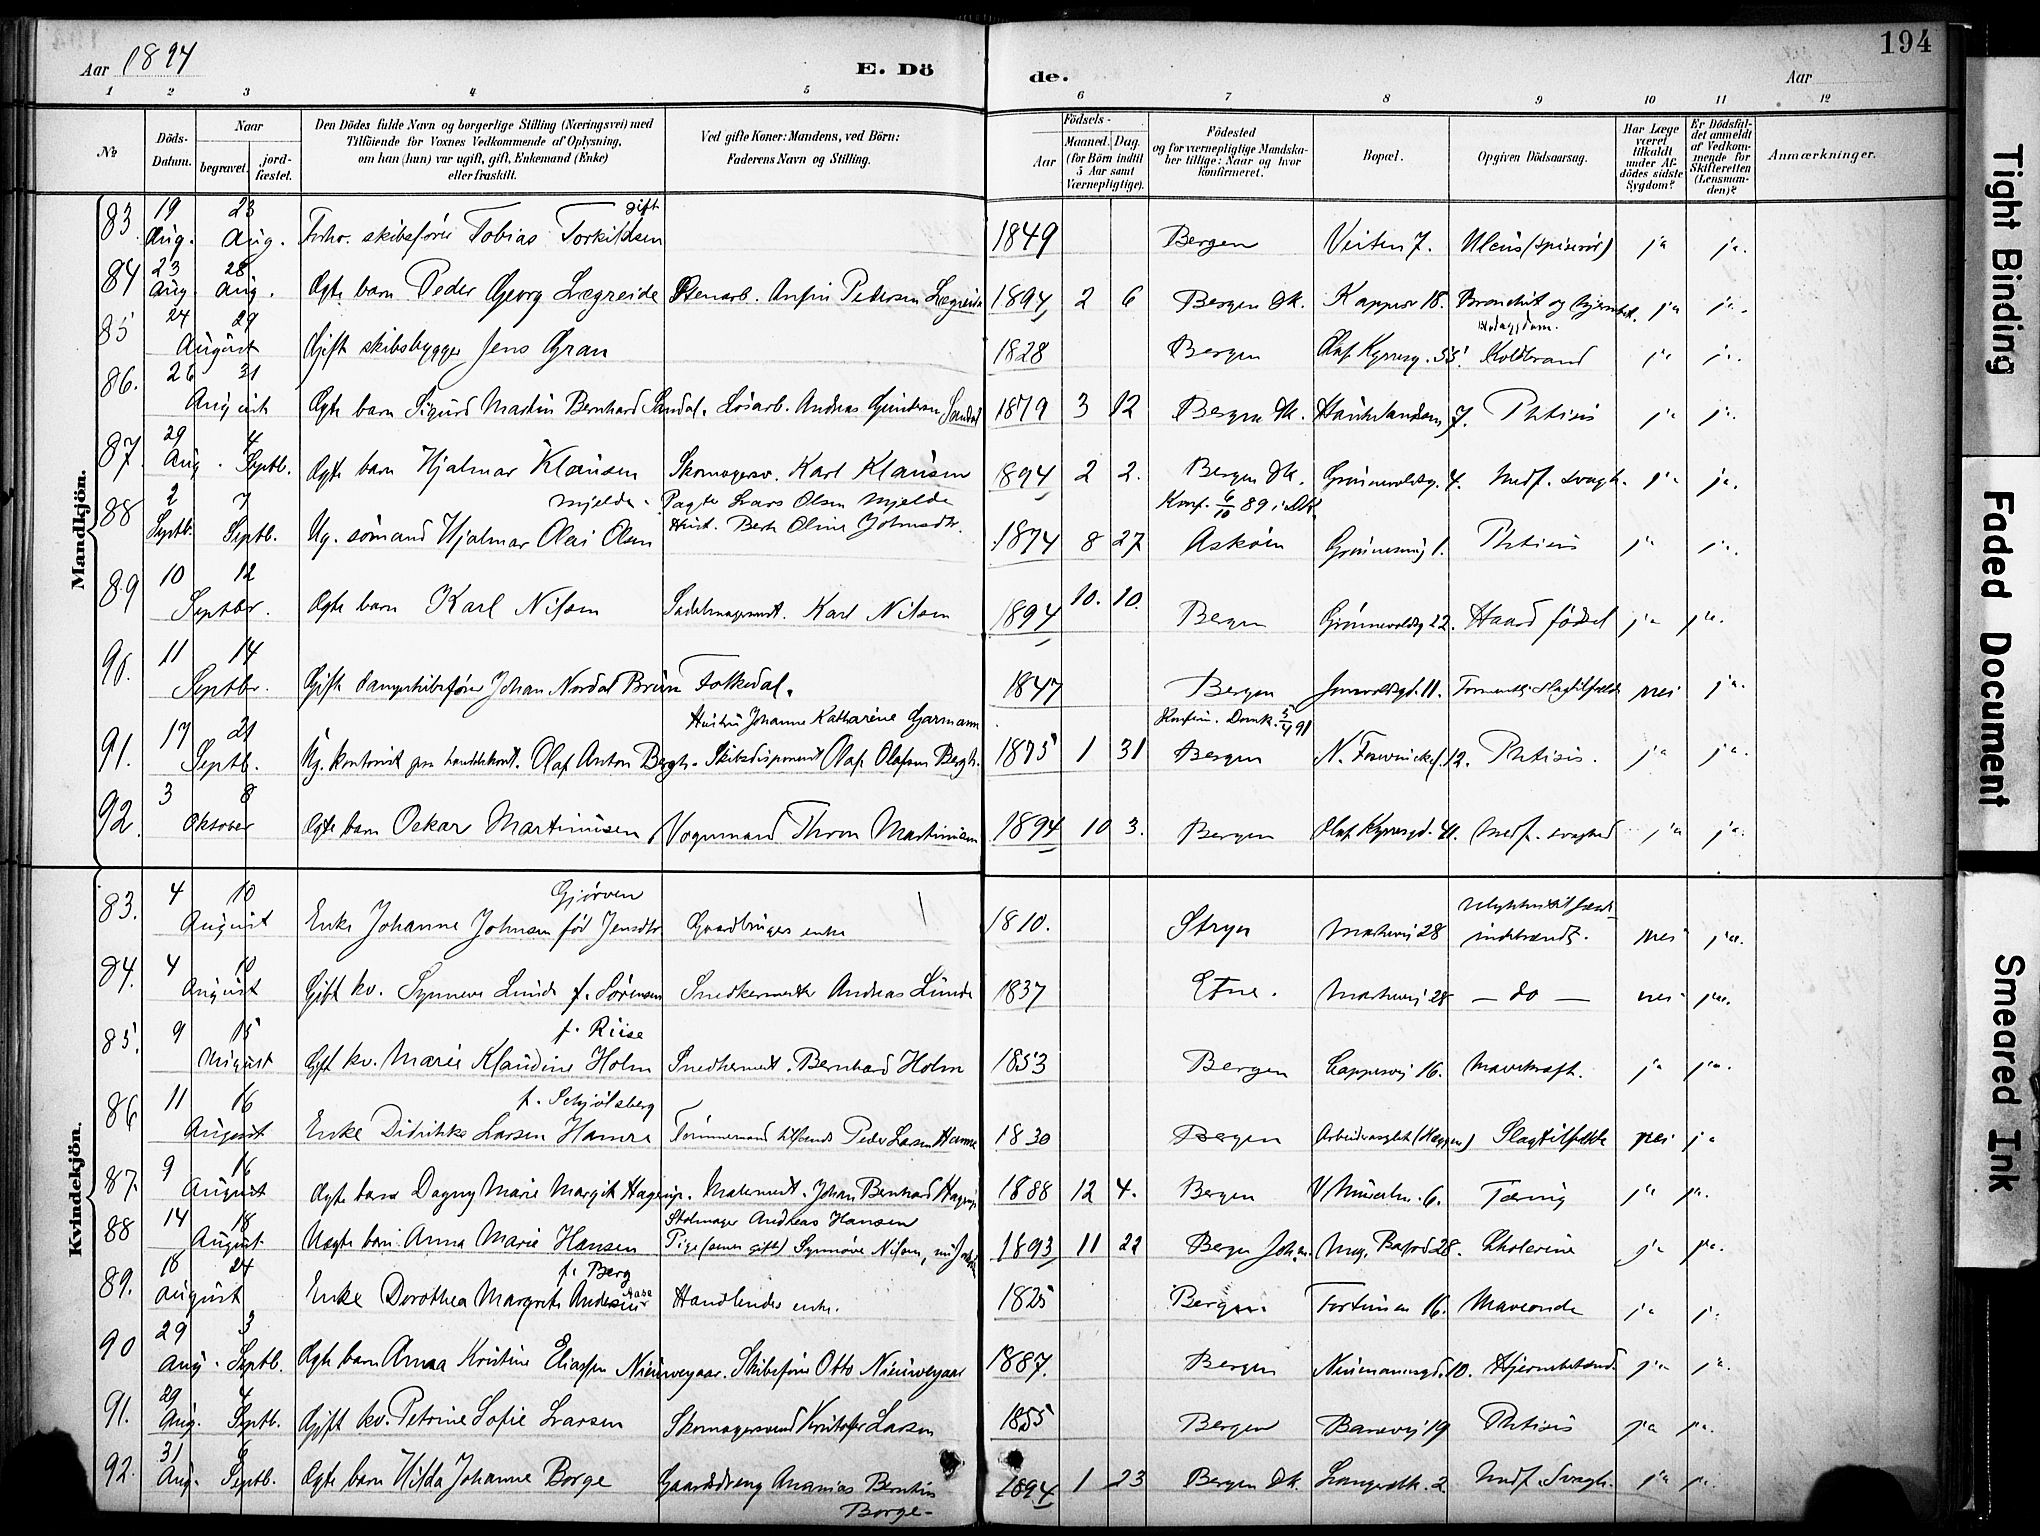 Aar 1894
E. Döde.
Aar
194
1 2 3 4 5 6 7 8 9 10 11 12
№
Döds-Datum.
Naar begravet. jordfæstet.
Den Dödes fulde Navn og borgerlige Stilling (Næringsvei) med Tilföiende for Voxnes Vedkommende af Oplysning, om han (hun) var ugift, gift, Enkemand (Enke) eller fraskilt.
Ved gifte Koner: Mandens, ved Börn: Faderens Navn og Stilling.
Födsels-
Aar Maaned. Dag. (for Börn indtil 5 Aar samt Værnepligtige).
Födested og for værnepligtige Mandskaber tillige: Naar og hvor konfirmeret.
Bopæl.
Opgiven Dödsaarsag.
Har Læge været tilkaldt under Afdödes sidste Sygdom?
Er Dödsfaldet anmeldt af Vedkommende for Skifteretten (Lensmanden)?
Anmærkninger.
Mandkjön.
83 19 Aug. 23 Aug. skibsfører Tobias Torkildsen gift 1849 Bergen Veiten 7. Ulcus (spiserør) ja ja.
84 23 Aug. 28 Aug. Ægte barn Peder Georg Lægreide Stenarb. Anfin Pedersen Lægreide 1894 2 6 Bergen Dk. Kappesv 18. Bronchit og ja ja.
85 24 29 August Gift skibsbygger Jens Gran 1828 Bergen Olaf Kyrresg. 55. Koldbrand ja ja.
86. 26 31 August Ægte barn Sigurd Martin Bernhard Sandal. Løsarb. Andreas Sandal 1879 3 12 Bergen Dk. 7. Phtisis ja ja.
87. 29 Aug. 4 Septb. Ægte barn Hjalmar Klausen Skomagersv. Karl Klausen 1894 2 2. Bergen Dk. 4. Medf. svagh. ja ja.
88 2 Septb. 7 Septb. Ug. sømand Hjalmar Olai Olsen Mjelde. Pagter Lars Olsen Mjelde
Hust. Berte Oline Johnsdtr. 1874 8 27 Konf. 6/10 89 i Dk. Askøen 1. Phtisis ja ja.
89 10 12 Septbr. Ægte barn Karl Nilsen Sadelmagersvt. Karl Nilsen 1894 10. 10. Bergen 22. Haard fødsel ja ja.
90. 11 14 Septbr. Gift dampskibsfører Johan Nordal Brun Folkedal. 1847 Bergen 11. Slagtilfælde nei ja.
Hustru Johanne Katharine Garmann
91. 17 21 Septb. Ug. kontorist Olaf Anton Bergh. Skibsdisponent Olaf Olafsen Bergh. 1875 1 31 Konfirm. Domk. 5/4 91 Bergen 12. Phtisis. ja ja.
92. 3 8 Oktober Ægte barn Oskar Martinusen Vognmand Thron Martinusen 1894 10 3. Bergen Olaf Kyrresgd. 41. Medf. svaghed ja ja.
Kvindekjön.
83. 4 10 August Enke Johanne Johnsen fød Jensdtr Gjørven Gaardbruger enke 1810. Stryn 28 indebrændt. nei ja.
84. 4 10 August Gift kv. Synneve Lunde f. Sørensen Snedkermester Andreas Lunde 1837 Etne. 28 — do — nei ja.
85. 9 15 August Gift kv. Marie Klaudine Holm f. Riise Snedkermest. Bernhard Holm 1853 Bergen Cappesvej 16. Mavekræft. ja ja.
86 11 16 August Enke Didrikke Larsen Hamre f. Schjølsberg Tømmermand Peder Larsen Hamre 1830 Bergen Slagtilfælde nei ja
87. 9 16 August Ægte barn Dagny Marie Margit Hagerup. Malermest. Johan Bernhard Hagerup 1888 12 4. Bergen 6. Tæring ja ja.
88 14 18 August Uægte barn Anna Marie Hansen Stolmager Andreas Hansen
Pige (senere gift) Synnøve Nilsen, 1893 11 22 Bergen Joh. 28. Cholerine ja ja.
89. 18 24 August Enke Dorothea Margrete Andersen f. Berg Handlendes enke. 1825 Bergen. Fortunen 16. Maveonde ja ja.
90 29 Aug. 3 Septb. Ægte barn Anna Kristine Eliassen Nieuwejaar. Skibsfører Otto Nieuwejaar 1887. Bergen Neumannsgd. 10. ja ja.
91. 29 Aug. 4 Septb. Gift kv. Petrine Sofie Larsen Skomagersvend Kristofer Larsen 1855 Bergen 19 Phtisis ja ja.
92. 31 Aug. 6 Septb. Ægte barn Hilda Johanne Borge Gaardsdreng Ananias Berntsen Borge. 1894 1 23 Bergen Dk. 2. Medf. Svagh. ja ja.
Tight Binding
Faded Document
Smeared Ink